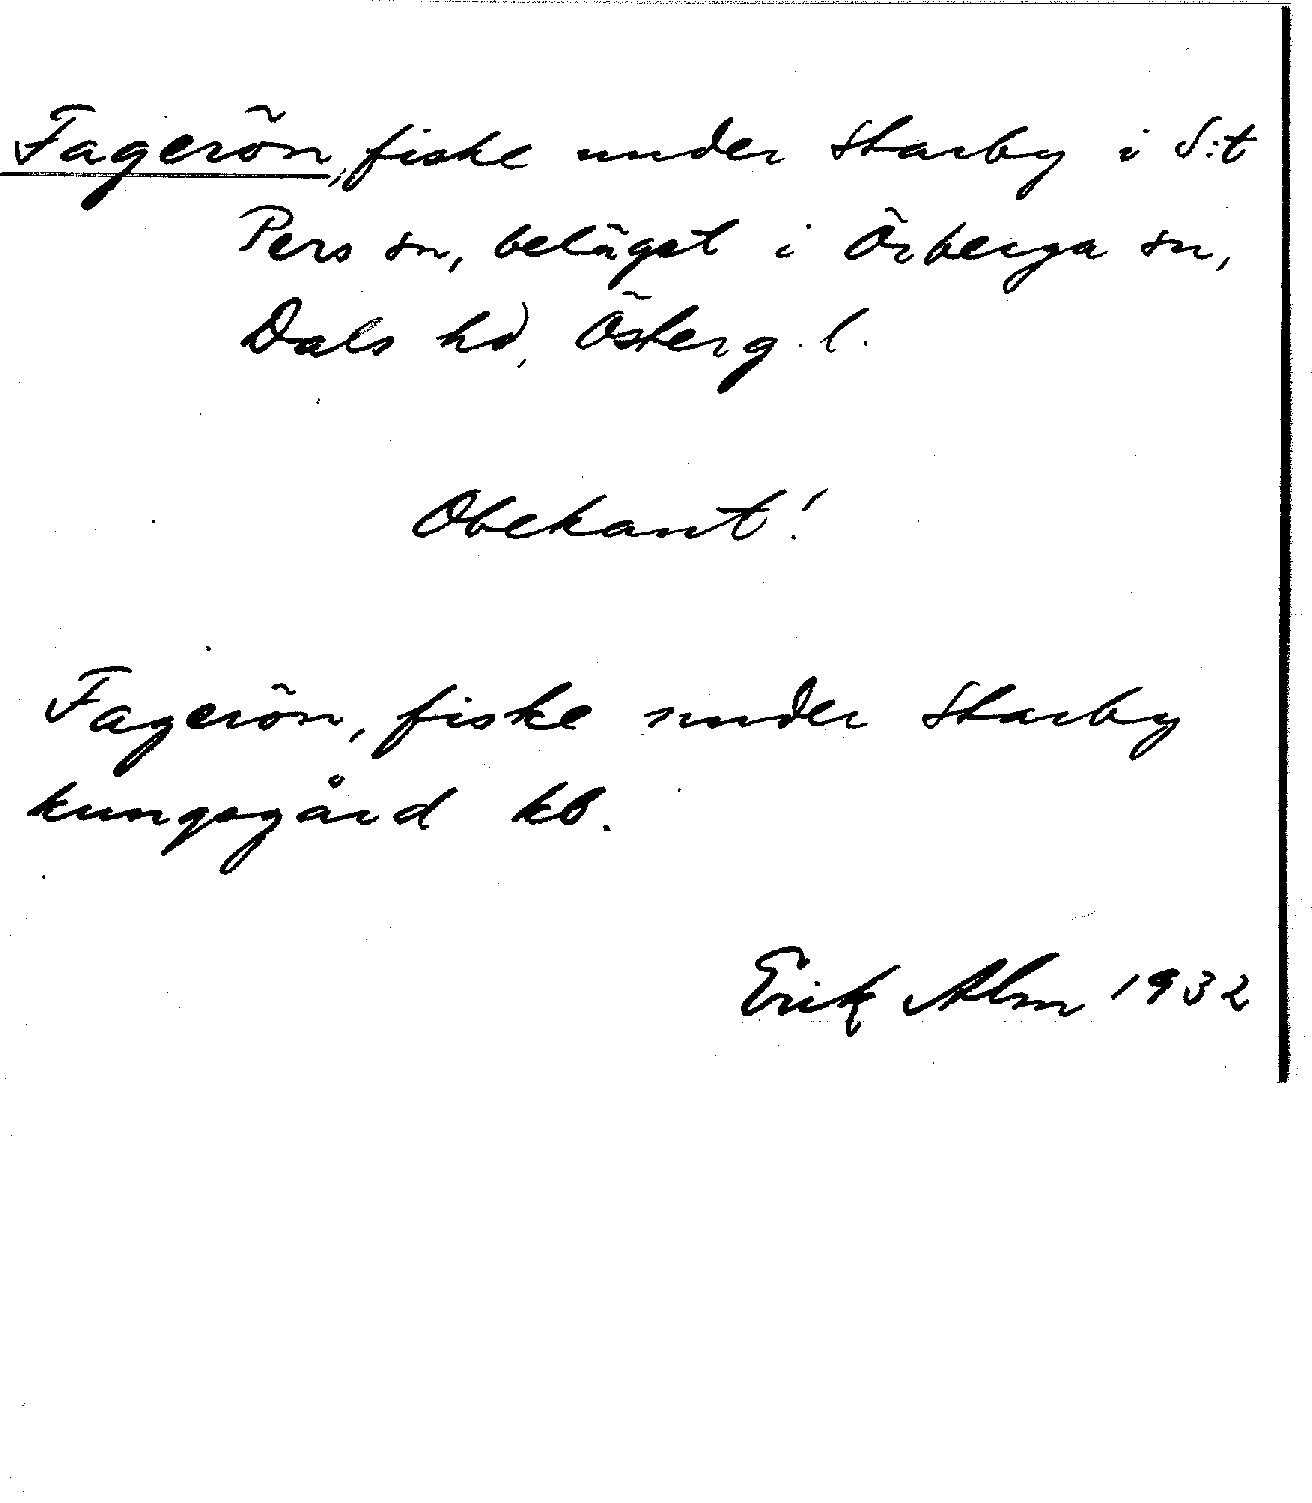 Fagerön, fiske under Starby i S:t
Pers sn, beläget i Örberga sn,
Dals hd, Österg. l.
Obekant!
Fagerön, fiske under Starby
kungsgård kb.
Erik Alm 1932